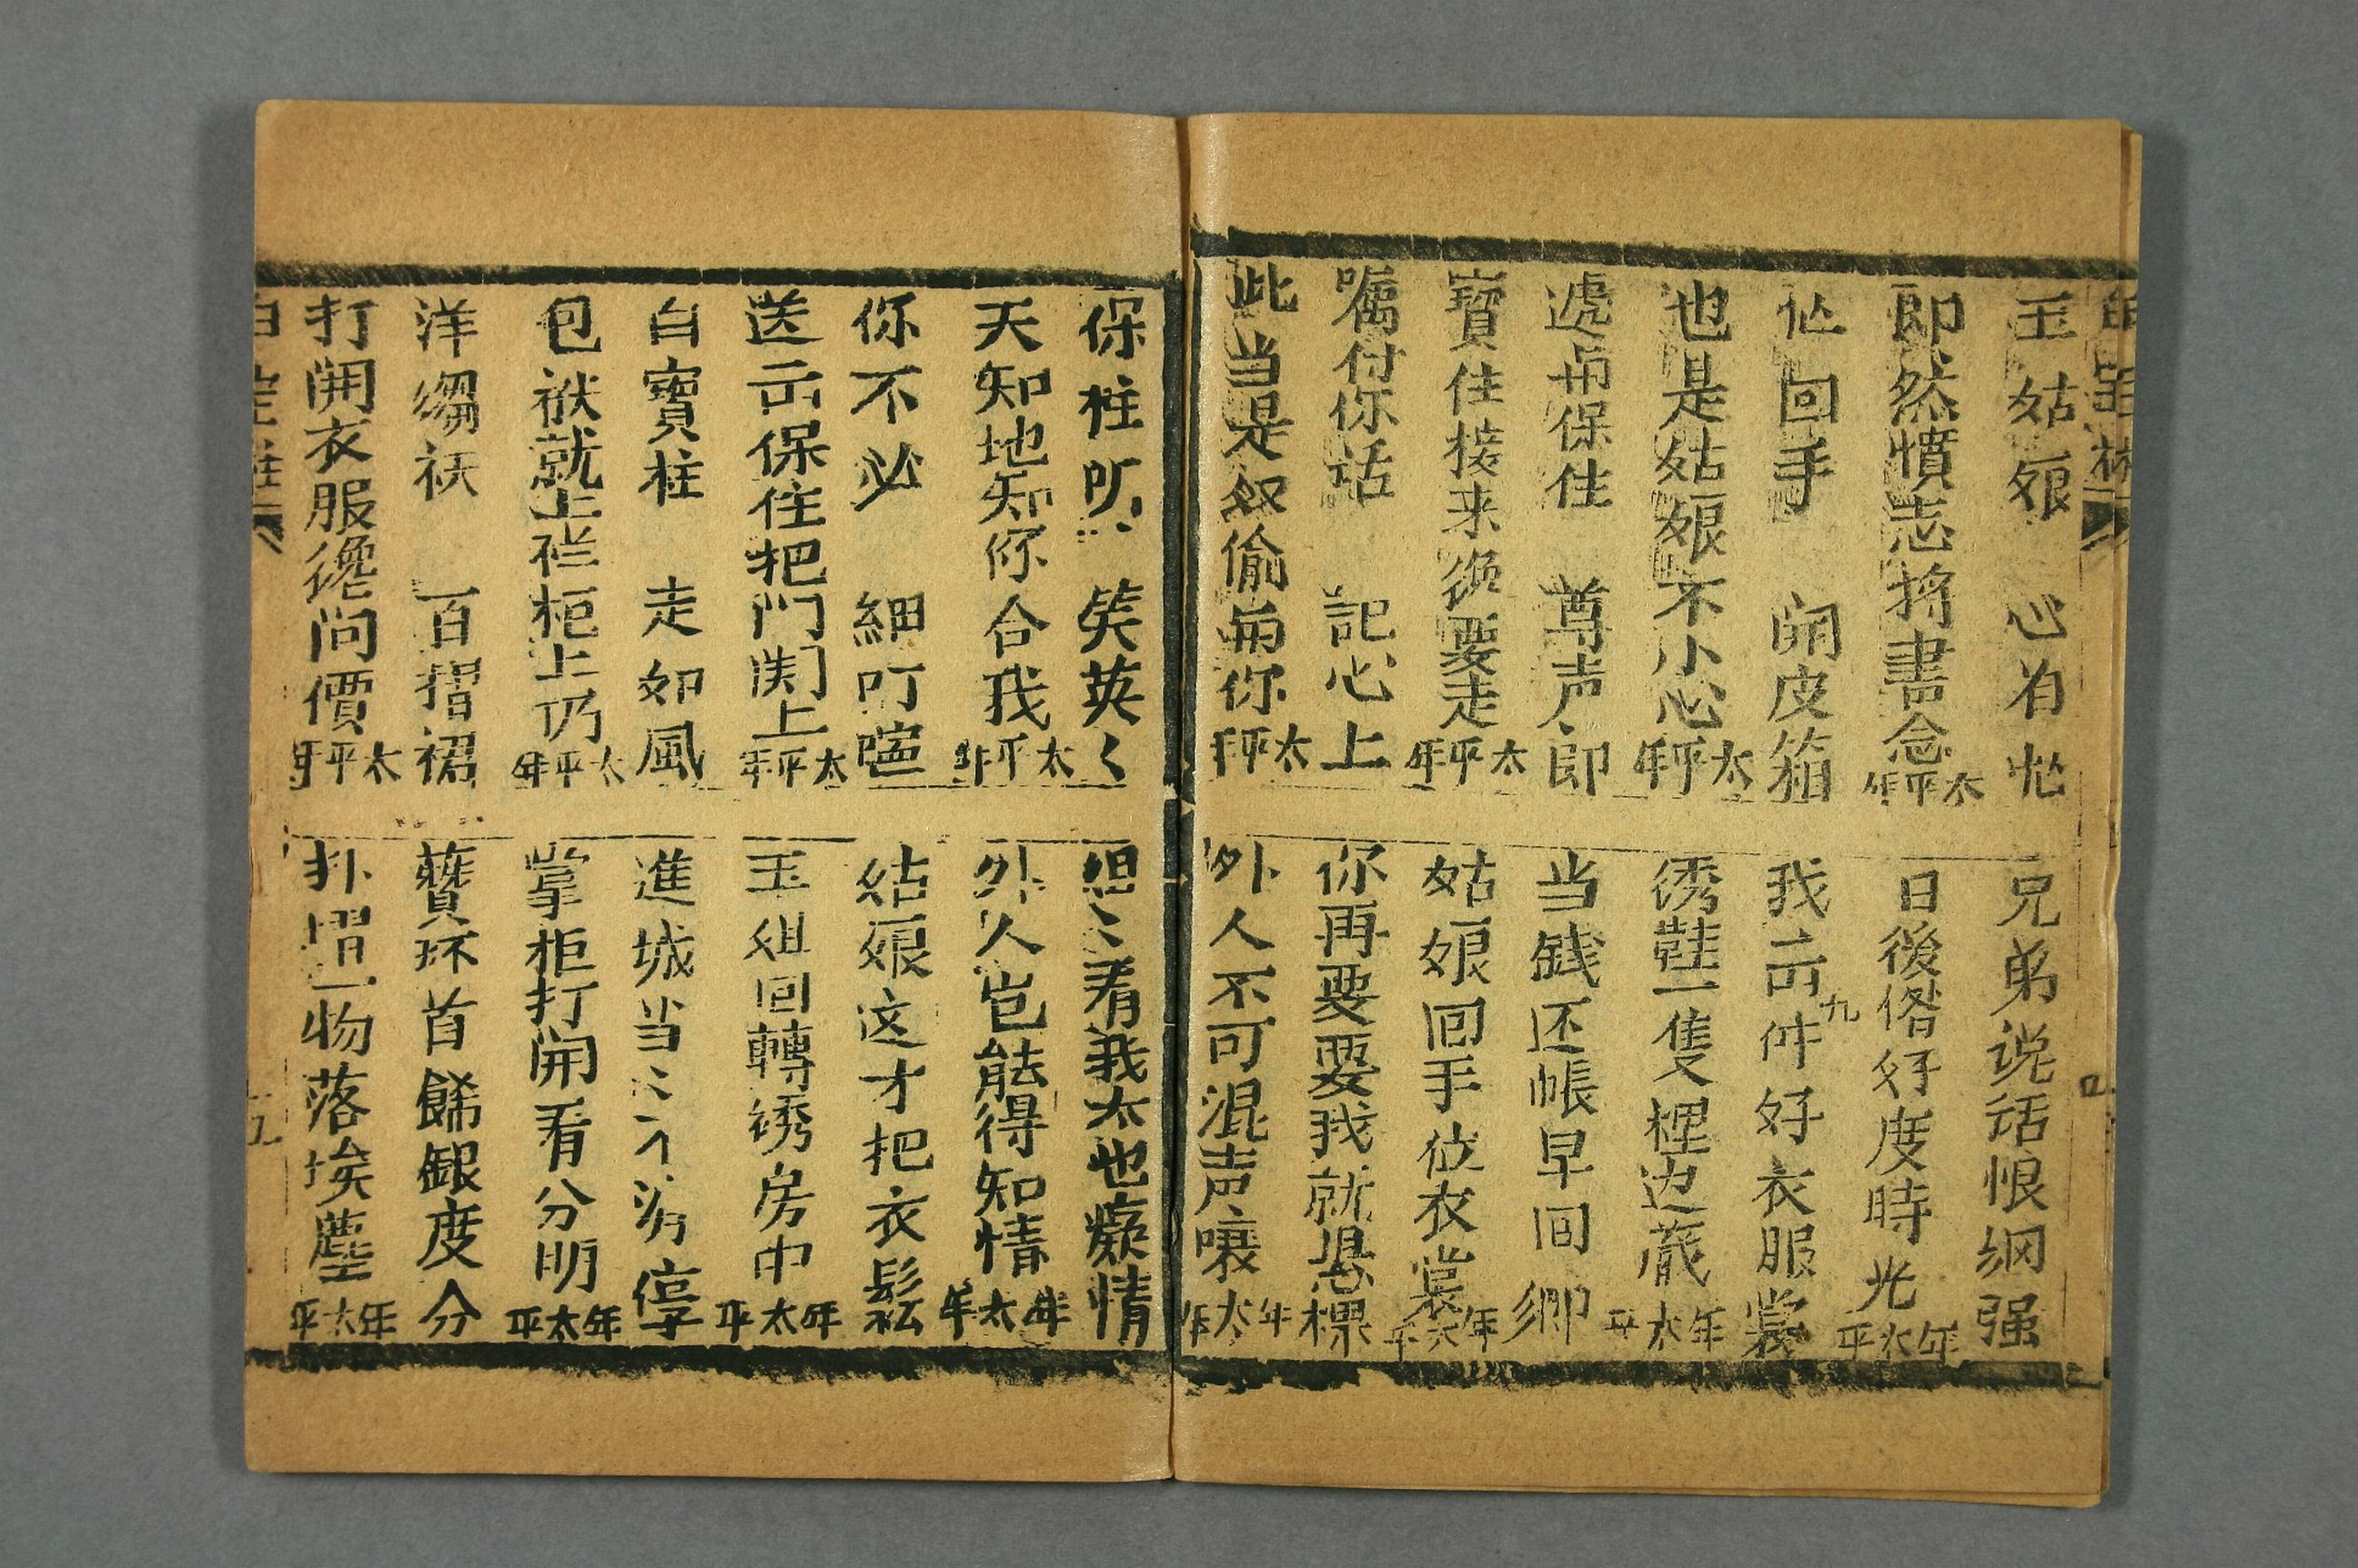 玉姑娘 心有忙
兄弟说话恨纲强
即然憤志将書念 太平年
日後俻好度時光 年太平
忙回手 開皮箱
我出九件好衣服裳
也是姑娘不小心 太平年
绣鞋一隻裡边藏 年太平
遞与保住 尊声郎
当錢还帳早回鄉
寶住接来纔要走 太平年
姑娘回手衣裳 年太平
嘱付你話 記心上
你再要要我就棵
此当是奴偷与你 太平年
外人不可混声嚷 年太平
保柱听 笑英々
姐〻看我太也癡情
天知地知你合我 太平年
外人岂能得知情 年太平
你不必 細叮嚀
姑娘这才把衣鬆
送出保住把門関上 太平年
玉姐回轉绣房中 年太平
白寶柱 走如風
進城当〻不消停
包袱就上拦柜上仍 太平年
掌柜打開看分明 年太平
洋縐袄 百摺裙
簪环首餙銀度分
打開衣服纔問價 太平年
扑塌一物落埃塵 年太平
五